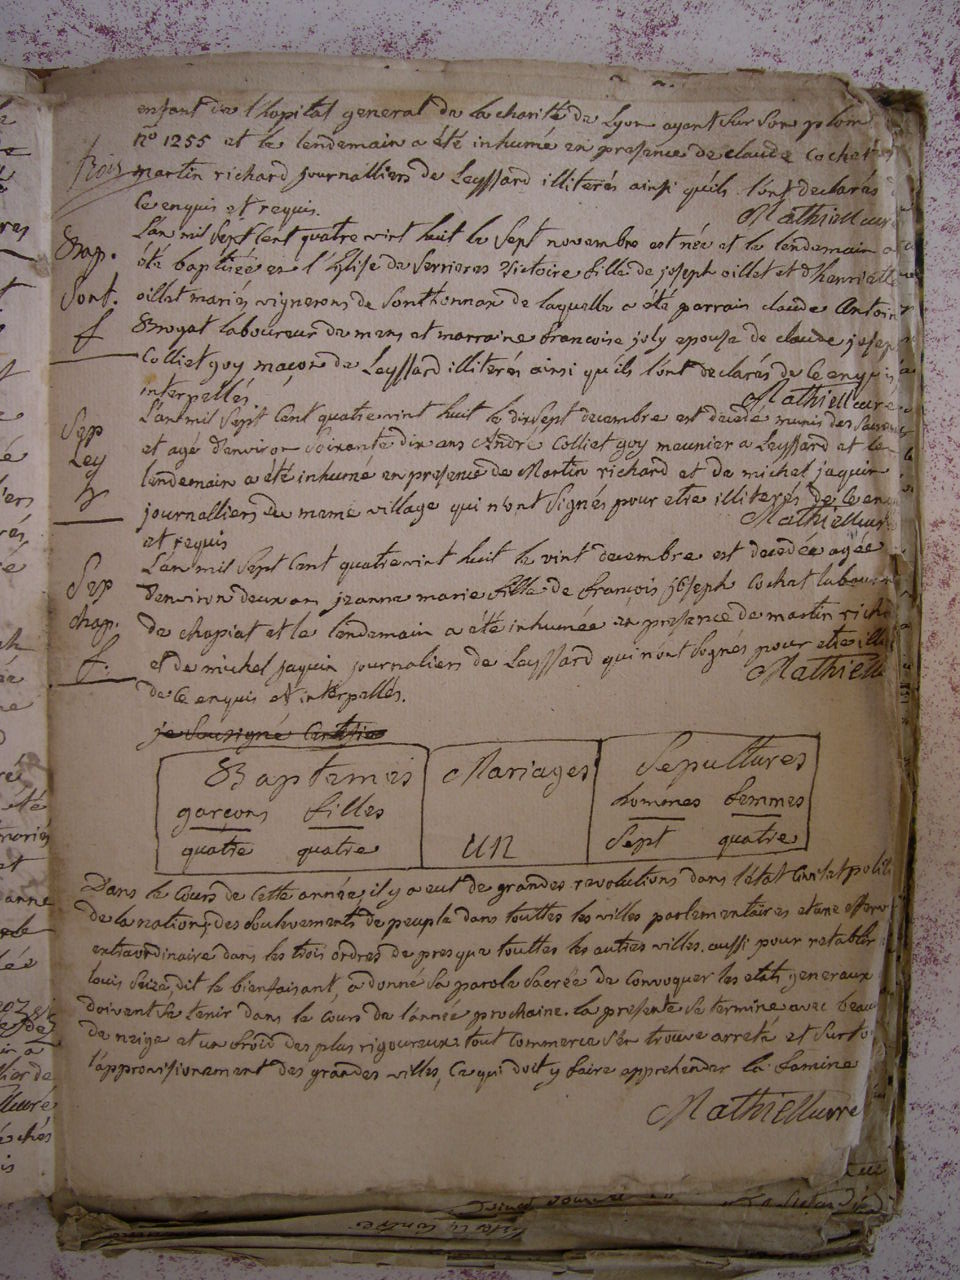 enfant de l'hopital general de la charité de Lyon ayant sur son plom
n° 1255 et le lendemain a été inhumé en presence de claude cochet
trois
martin richard journalliers de Leyssard illiterés ainsi qu'ils l'ont declarés
ce enquis et requis.
Mathieu curé
Bap.
Sont.
f
L'an mil sept cent quatre vint huit le sept novembre est née et le lendemain a
été baptisée en l'Eglise de Serrieres Victoire fille de joseph oillet et d'henriette
oillet mariés vignerons de Sonthonnax de laquelle a été parrain claude Antoine
Brogat laboureur de mens et marraine francoise joly epouse de claude josep
Colliet goy maçon de Leyssard illiterés ainsi qu'ils l'ont declarés de ce enquis
interpellés
Mathieu curé
Sep
Ley
L'an mil sept cent quatre vint huit le dix sept decembre est decedé munis des
et agé d'environ soixante dix ans André Colliet goy meunier a Leyssard et le
lendemain a été inhumé en presence de Martin richard et de michel jaquin
journalliers du meme village qui n'ont signés pour etre illiterés de ce en
et requis
Mathieu curé
Sep
chap.
f.
L'an mil sept cent quatre vint huit le vint decembre est decedée agée
d'environ deux ans jeanne marie fille de francois joseph cochat laboureur
de chapiat et le lendemain a été inhumée en presence de martin richa
et de michel jaquin journaliers de Leyssard qui n'ont signés pour etre ille
de ce enquis et interpellés.
Mathieu
je sousigné Certifie
Baptemes Mariages Sepultures
garcons filles hommes femmes
quatre quatre un sept quatre
Dans le cours de cette année, il y a eut de grandes revolutions dans l'état Civil et polit
de la nation, des soulevements de peuple dans touttes les villes parlementaires et une efferv
extraordinaire dans les trois ordres de presque touttes les autres villes. aussi pour retablir
louis seize, dit le bienfaisant, a donné sa parole sacrée de convoquer les etats generaux
doivent se tenir dans le cours de l'année prochaine. la presente se termine avec beau
de neige et un froid des plus rigoureux. tout commerce s'en trouve arreté et surto
l'approvisionement des grandes villes, ce qui doit y faire apprehender la famine
Mathieu curé